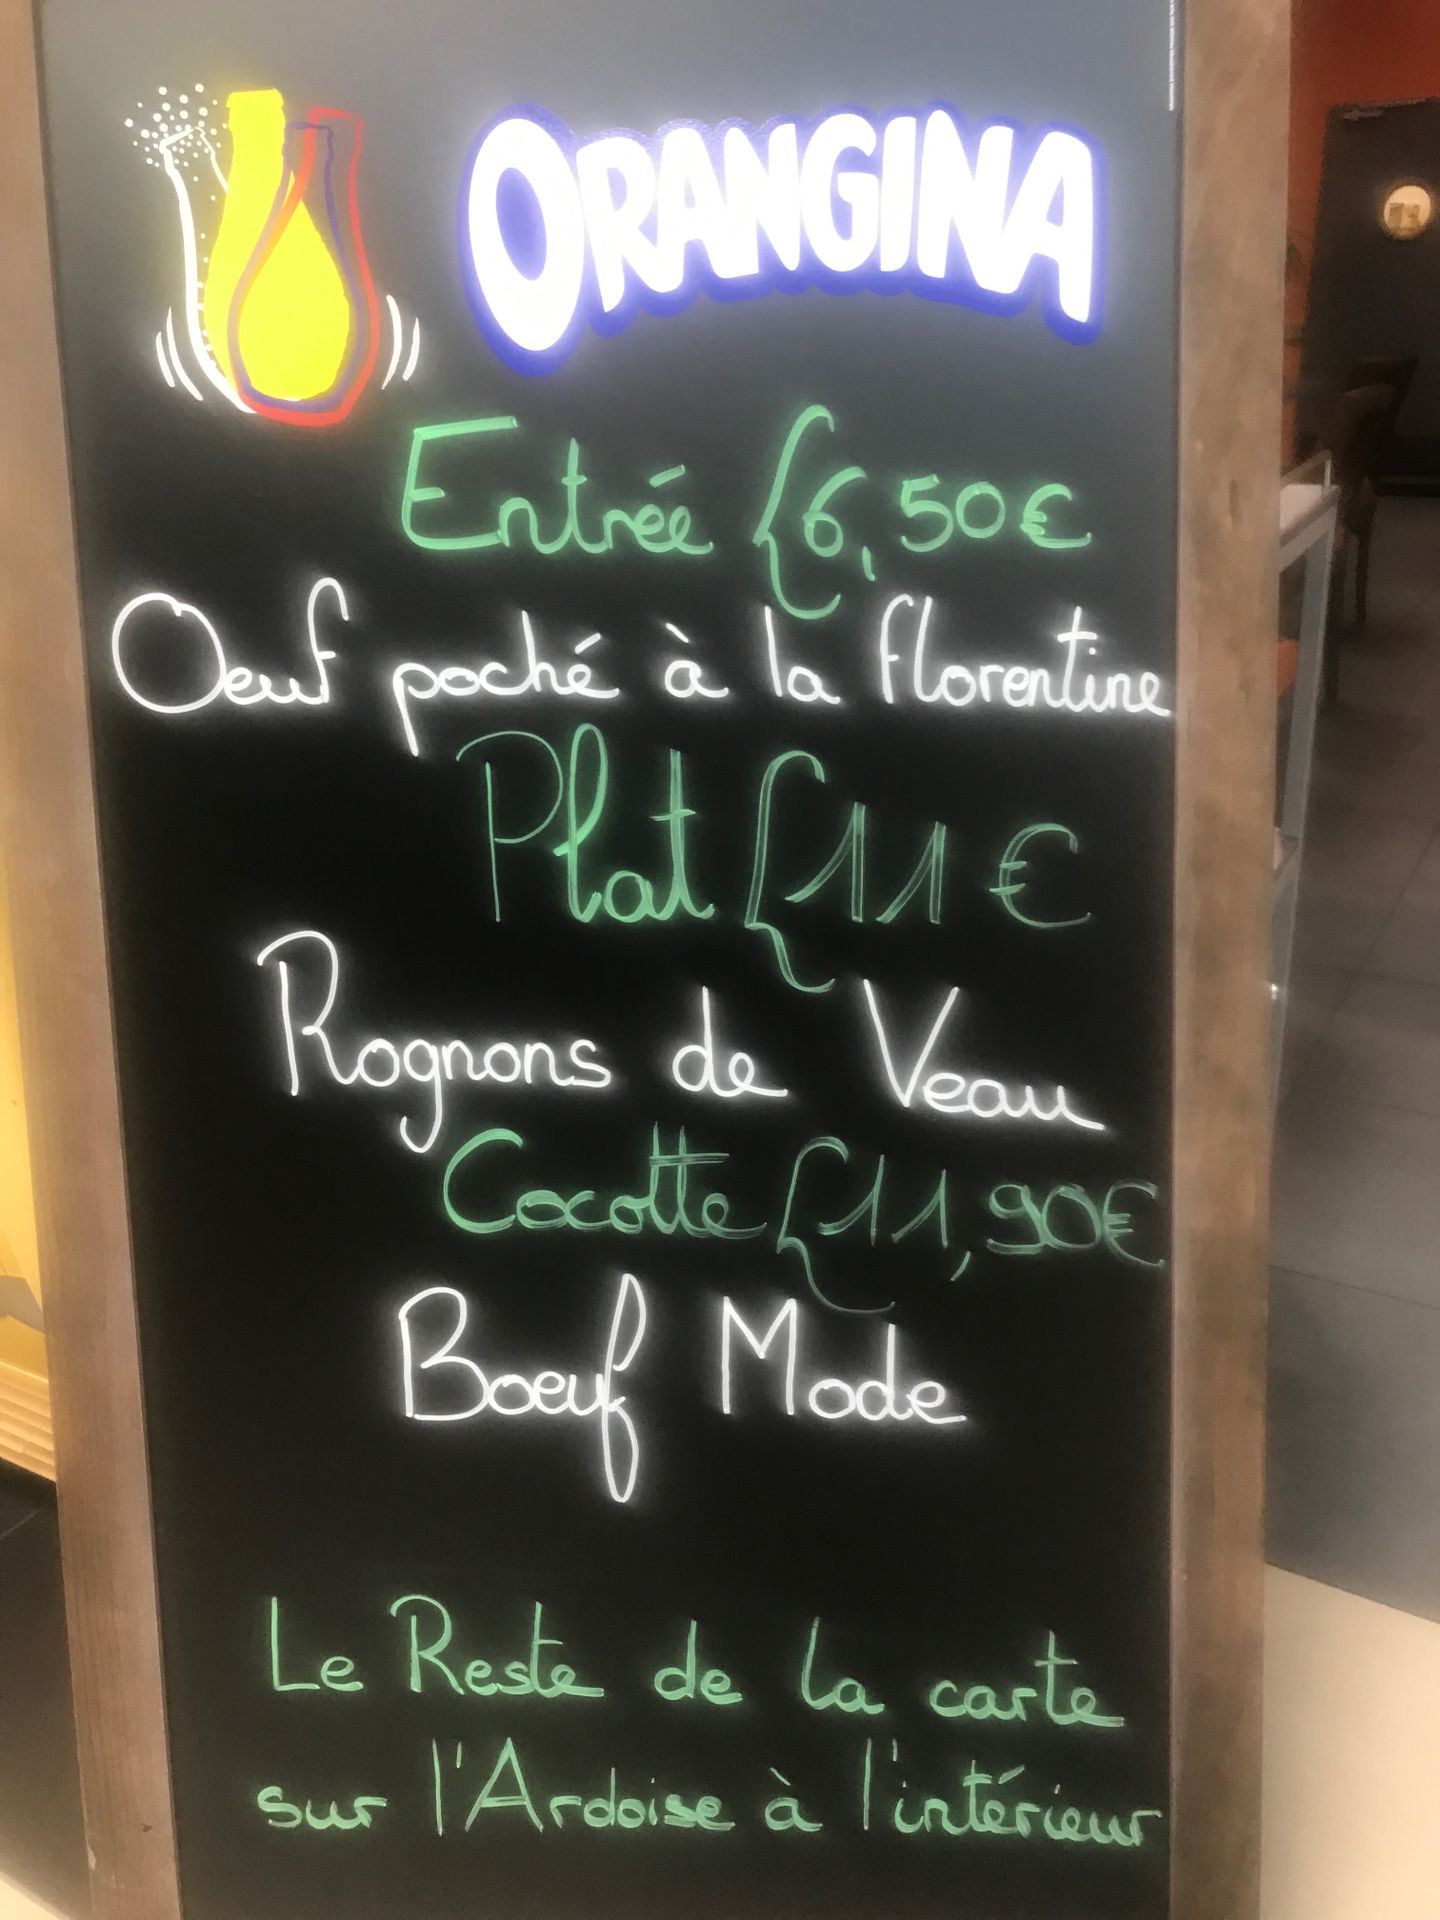 ORANGINA
Entrée {6,50€
Oeuf poché à la florentine
Plat {11€
Rognons de Veau
Cocotte {11,90€
Boeuf Mode
Le Reste de la carte
sur l'Ardoise à l'intérieur